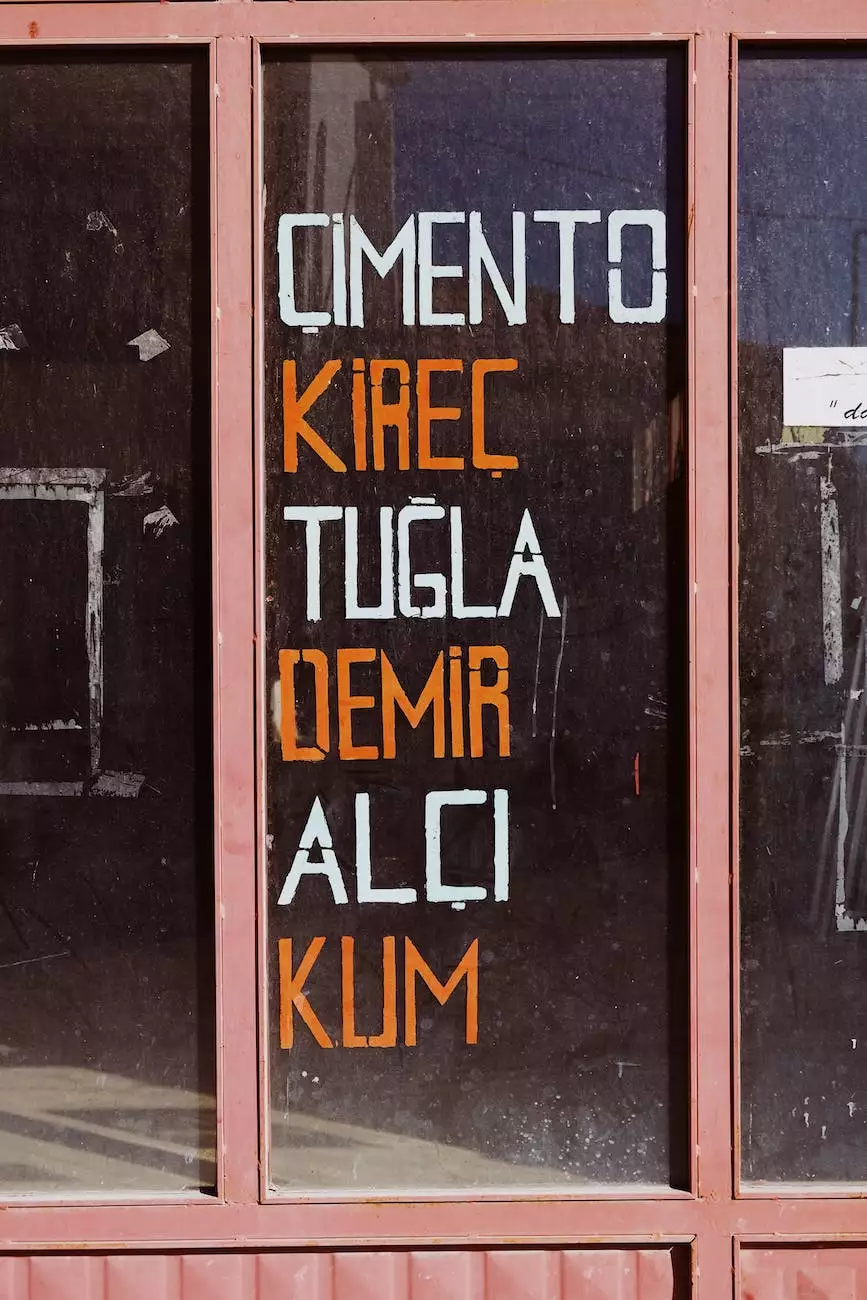 ÇİMENTO
KİREÇ
TUĞLA
DEMİR
ALÇI
KUM